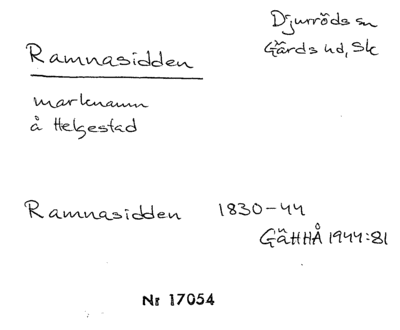 Djurröds sn
Ramnasidden
Gärds hd, Sk
marknamn
å Helgestad
Ramnasidden 1830-44
GäHHÅ 1944:81
Nr 17054